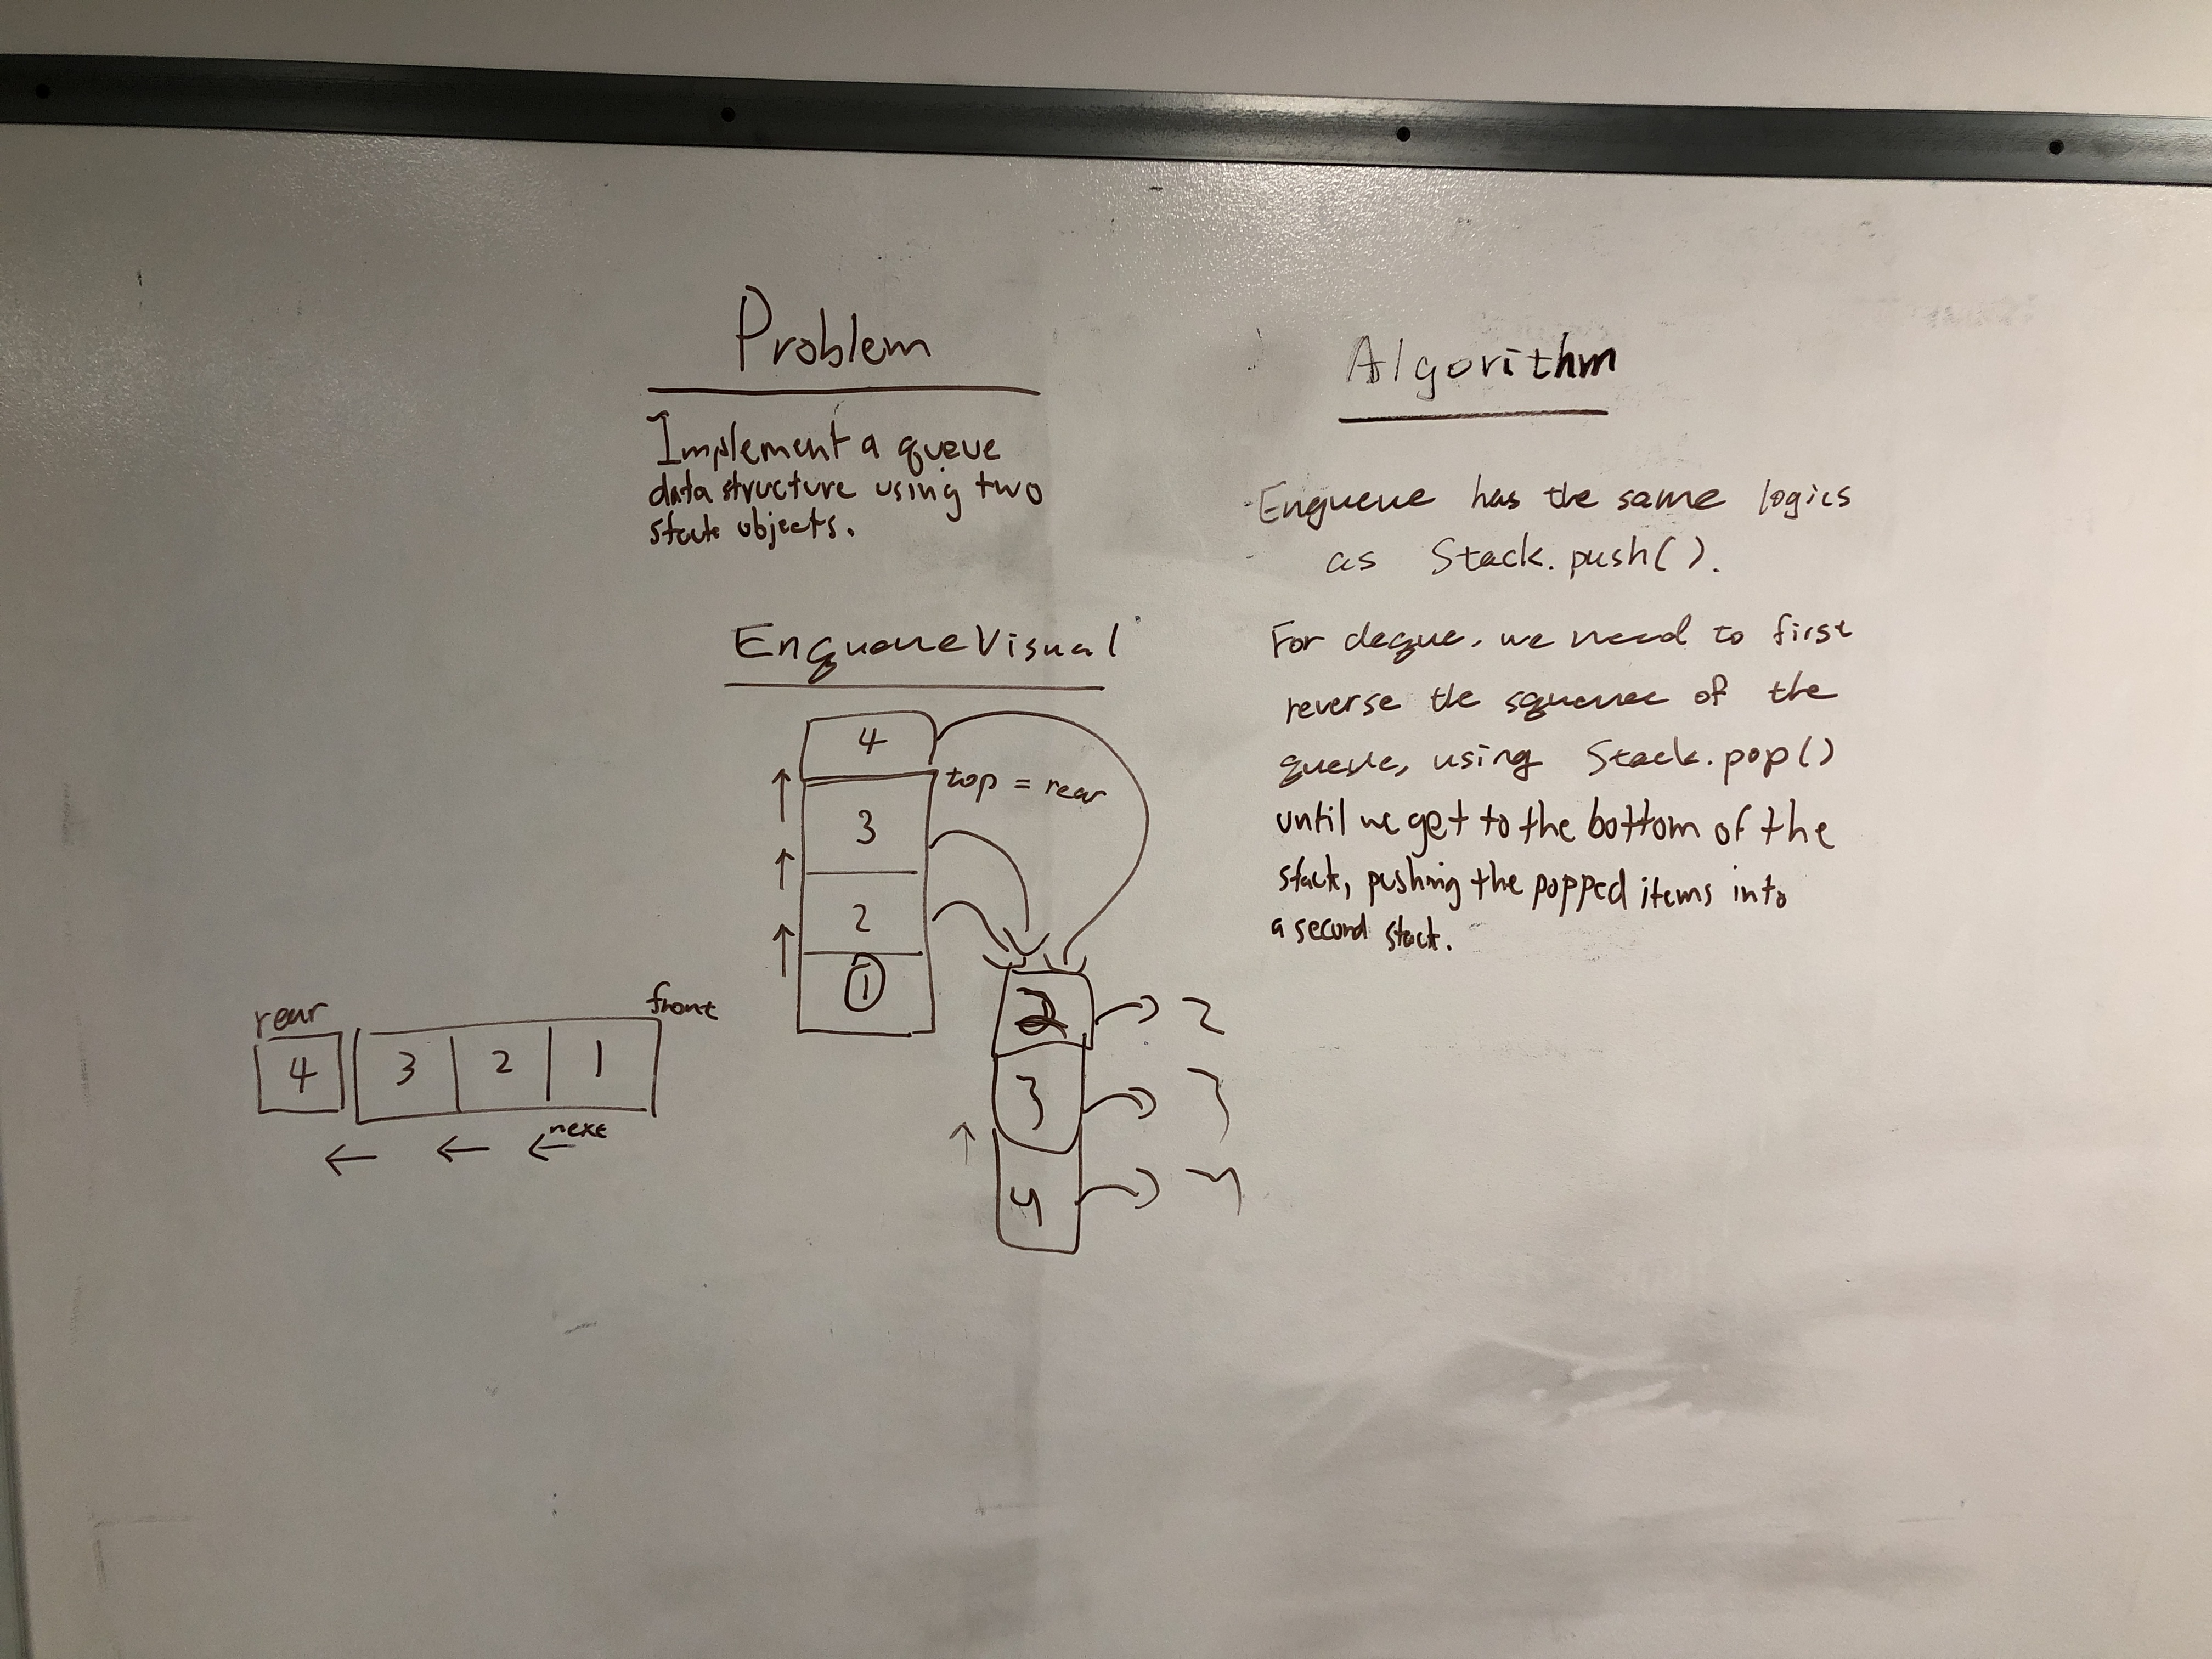 Problem
Implement a queue
data structure using two
stack objects.
Enqueue Visual
4
top = rear
3
2
1
rear
front
4 3 2 1
next
2 2
3 3
4 4
Algorithm
Enqueue has the same logics
as Stack.push().
For deque, we need to first
reverse the squence of the
queue, using Stack.pop()
until we get to the bottom of the
stack, pushing the popped items into
a second stack.